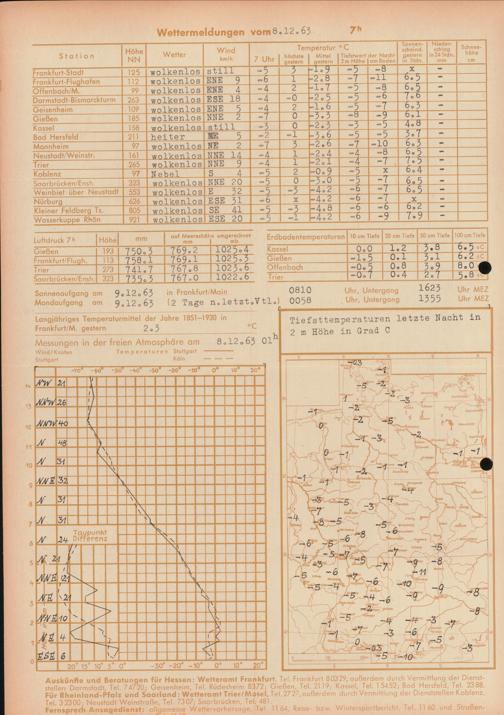 Wettermeldungen vom 8.12.63 7h
Station Höhe NN Wetter Wind km/h Temperatur °C Sonnenschein gestern in Stdn. Niederschlag in 24 Stdn. mm Schneehöhe cm
7 Uhr höchste gestern Mittel gestern Tiefstwert der Nacht 2 m Höhe am Boden
Frankfurt-Stadt 125 wolkenlos still -5 3 -1.9 -5 -8 x -
Frankfurt-Flughafen 112 wolkenlos ENE 9 -6 1 -2.8 -7 -11 6.5 -
Offenbach/M. 99 wolkenlos ENE 4 -4 2 -1.7 -5 -8 6.5 -
Darmstadt-Bismarckturm 263 wolkenlos ESE 18 -4 -0 -2.5 -5 -6 7.6 -
Geisenheim 109 wolkenlos ENE 5 -4 2 -1.6 -5 -7 6.3 -
Gießen 185 wolkenlos NNE 2 -7 0 -3.3 -8 -9 6.1 -
Kassel 158 wolkenlos still -3 0 -2.3 -3 -5 4.8 -
Bad Hersfeld 211 heiter NE 5 -2 -1 -3.6 -5 -5 3.7 -
Mannheim 97 wolkenlos NE 2 -7 3 -2.6 -7 -10 6.3 -
Neustadt/Weinstr. 161 wolkenlos NNE 14 -4 1 -2.4 -4 -8 6.5 -
Trier 265 wolkenlos NNE 9 -4 1 -2.1 -4 -7 7.5 -
Koblenz 97 Nebel S 4 -5 2 -0.9 -5 x 6.4 -
Saarbrücken/Ensh. 323 wolkenlos NNE 20 -5 0 -3.0 -5 -7 6.5 -
Weinbiet über Neustadt 553 wolkenlos E 32 -5 -3 -4.2 -6 -7 6.5 -
Nürnberg 626 wolkenlos ESE 31 -6 x -4.2 -6 x x -
Kleiner Feldberg Ts. 805 wolkenlos SE 41 -5 -3 -4.2 -6 -6 6.2 -
Wasserkuppe Rhön 921 wolkenlos ESE 20 -5 -1 -4.2 -6 -9 7.9 -
Luftdruck 7h Höhe mm auf Meereshöhe umgerechnet mm mb
Gießen 193 750.3 769.2 1025.4
Frankfurt/Flugh. 113 758.1 769.1 1025.3
Trier 273 741.7 767.8 1023.6
Saarbrücken/Ensh. 323 735.3 767.0 1022.6
Erdbodentemperaturen 10 cm Tiefe 20 cm Tiefe 50 cm Tiefe 100 cm Tiefe
Kassel 0.0 1.2 3.8 6.5 °C
Gießen -1.5 0.1 3.1 6.2 °C
Offenbach -0.5 0.8 3.9 8.0
Trier -0.7 0.4 2.7 5.8
Sonnenaufgang am 9.12.63 in Frankfurt/Main 0810 Uhr, Untergang 1623 Uhr MEZ
Mondaufgang am 9.12.63 (2 Tage n.letzt.Vtl.) 0058 Uhr, Untergang 1355 Uhr MEZ
Langjähriges Temperaturmittel der Jahre 1851-1930 in
Frankfurt/M. gestern 2.3 °C
Messungen in der freien Atmosphäre am 8.12.63 01h
Wind/Knoten Temperaturen Stuttgart
Stuttgart Köln
Tiefsttemperaturen letzte Nacht in
2 m Höhe in Grad C
NW 21
NNW 26
NNW 40
N 48
N 31
NNE 32
N 31
N 31
N 24
Taupunkt
Differenz
N 21
NNE 21
NE 21
NNE 10
NE 4
ESE 6
Auskünfte und Beratungen für Hessen: Wetteramt Frankfurt, Tel. Frankfurt 80329; außerdem durch Vermittlung der Dienststellen Darmstadt, Tel. 74720; Geisenheim, Tel. Rüdesheim 8372; Gießen, Tel. 2119; Kassel, Tel. 15452; Bad Hersfeld, Tel. 2388.
Für Rheinland-Pfalz und Saarland: Wetteramt Trier/Mosel, Tel. 2727, außerdem durch Vermittlung der Dienststellen Koblenz,
Tel. 32300; Neustadt Weinstraße, Tel. 7307; Saarbrücken, Tel. 481.
Fernsprech Ansagedienst: allgemeine Wettervorhersage, Tel. 1164, Reise- bzw. Wintersportbericht, Tel. 1160